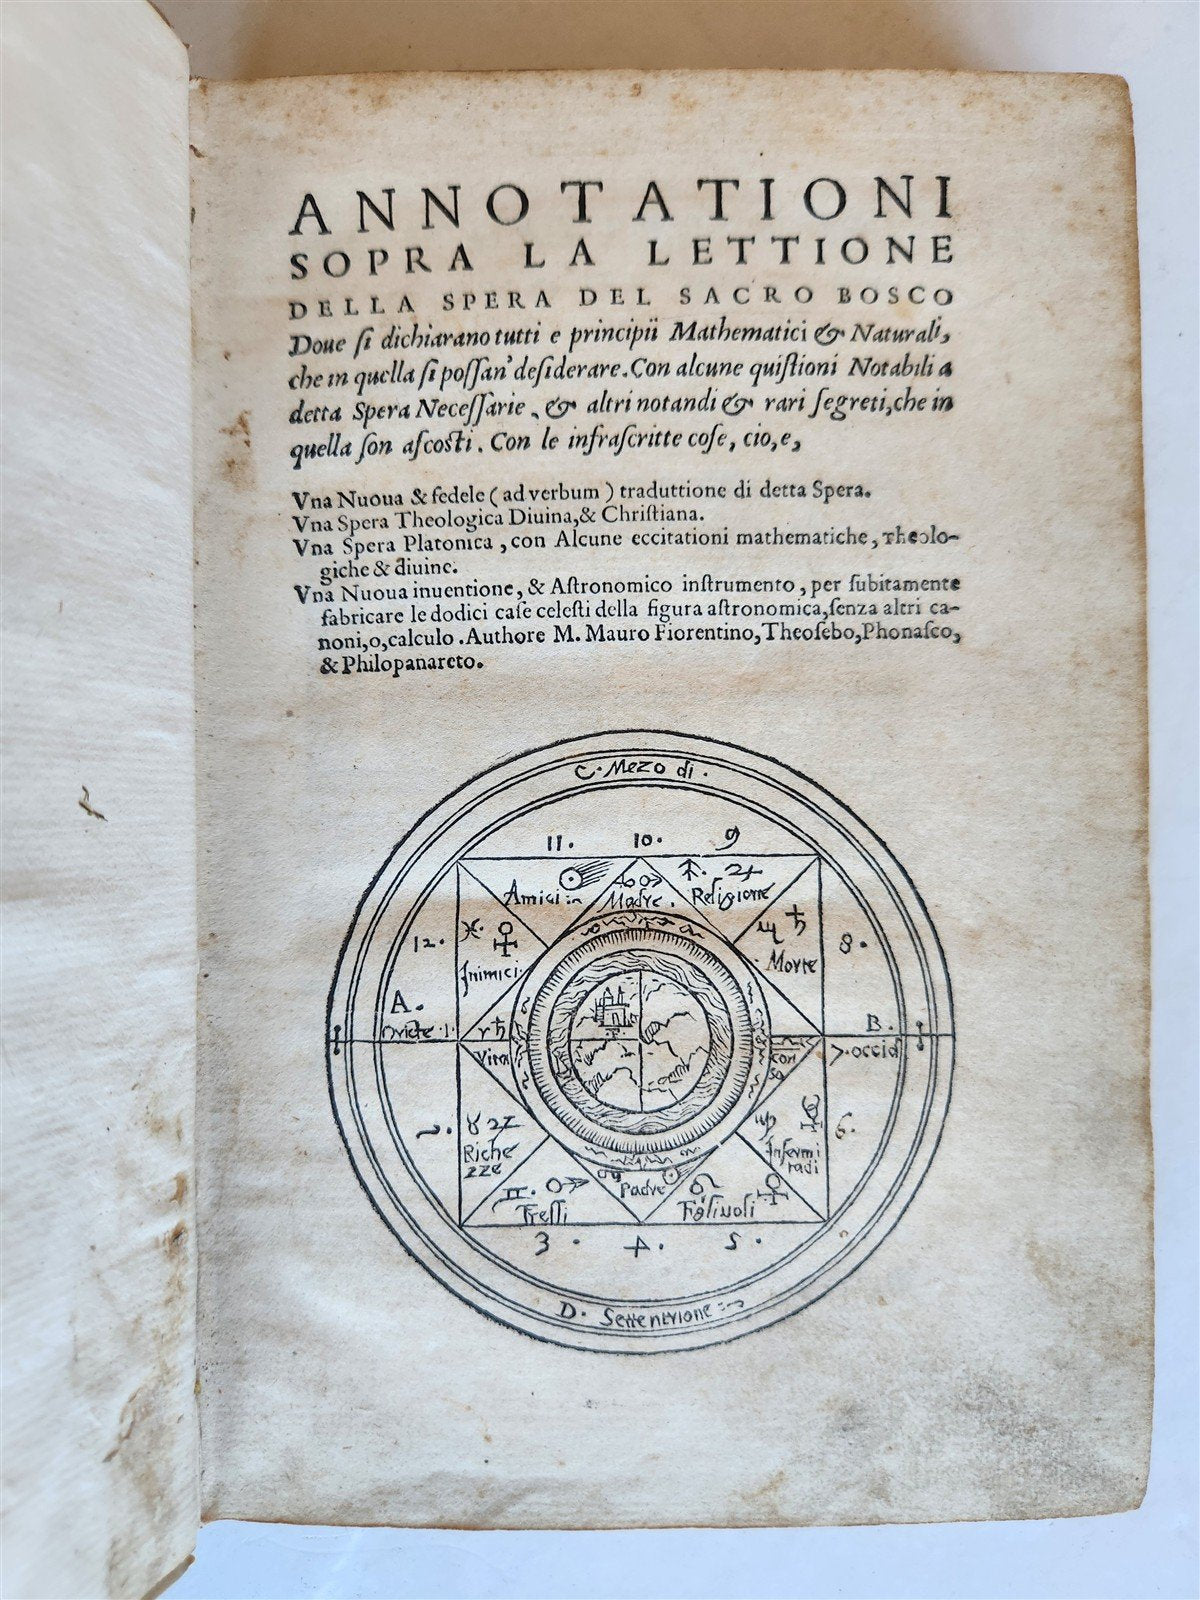 ANNOTATIONI
SOPRA LA LETTIONE
DELLA SPERA DEL SACRO BOSCO
Doue ſi dichiarano tutti e principii Mathematici & Naturali,
che in quella ſi poſſan' deſiderare. Con alcune quiſtioni Notabili a
detta Spera Neceſſarie, & altri notandi & rari ſegreti, che in
quella ſon aſcoſti. Con le infraſcritte coſe, cio, e,
Vna Nuoua & fedele ( ad verbum ) traduttione di detta Spera.
Vna Spera Theologica Diuina, & Chriſtiana.
Vna Spera Platonica, con Alcune eccitationi mathematiche, Theolo-
giche & diuine.
Vna Nuoua inuentione, & Aſtronomico inſtrumento, per ſubitamente
fabricare le dodici caſe celeſti della figura aſtronomica, ſenza altri ca-
noni, o, calculo. Authore M. Mauro Fiorentino, Theoſebo, Phonaſco,
& Philopanareto.
C. Mezo di.
11. 10. 9
♐. ♃
Amici Madre. Religione
12. ♓. ♀ ♏ ♄ 8.
Inimici Morte
A. B.
1. ♈ ♄ 7. occid
Vita con
so
2. ♉ ♃ 6.
Riche
zze
Infermi
tadi
♊. ♂ ☉ ♌ ♀
Frelli Padre Figliuoli
3. 4. 5.
D. Settentrione